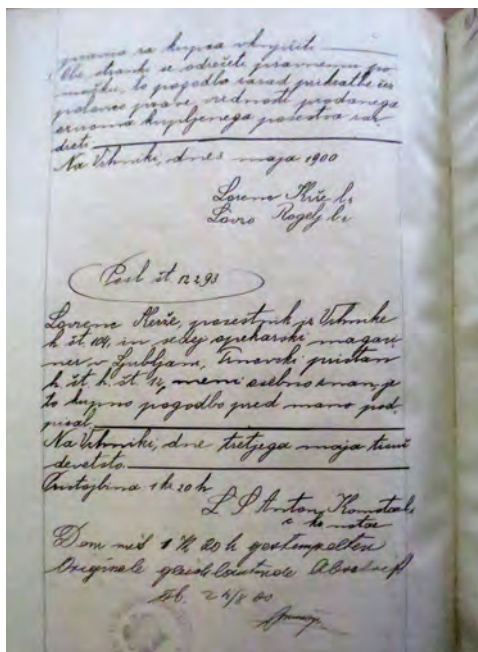 pravna za kupca vknjižiti
Obe stranki se odrečete pravnemu po-
močku, to pogodbo zarad prikratbe čez
polovico prave vrednosti prodanega
oziroma kupljenega posestva
Na Vrhniki, dne 3 maja 1900
Lorenc Kerže l.s
Lovro Rogelj l.r
Posl št. 12293
Lovrenc Kerže, posestnik iz Vrhnike
h. št. 104, in sedaj opekarski magaci-
ner v Ljubljani, Trnovski pristan
h. št. h. št. 12, meni osebno znan, je
to kupno pogodbo pred mano pod-
pisal.
Na Vrhniki, dne tretjega maja tisoč
devetsto.
Pristojbina 1 K 20 h
L S Anton Komotar l.
c. k. notar
Dem mit 1 K 20 h gestempelten
Originale gleichlautende Abschrift